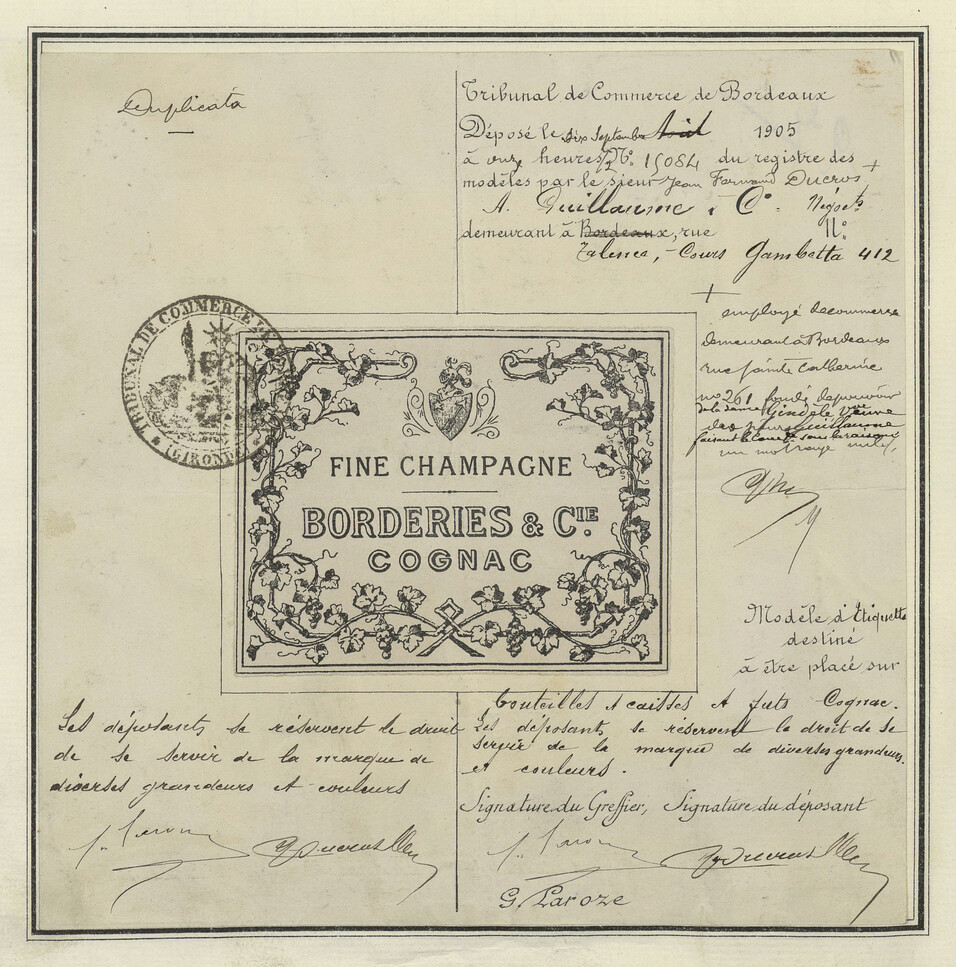 Duplicata
Tribunal de Commerce de Bordeaux
Déposé le dix Septembre 1905
à onze heures 1/2 N° 15084 du registre des
modèles par le sieur Jean Fernand Ducros +
A. Guillaume & Cie Négocts
demeurant à Bordeaux, rue N°
Talence, - Cours Gambetta 412
+ employé de commerce
demeurant à Bordeaux
rue Sainte Catherine
n° 261 fondé de pouvoir
de la dame veuve
Guillaume
TRIBUNAL DE COMMERCE DE
(GIRONDE)
FINE CHAMPAGNE
BORDERIES & CIE.
COGNAC
Modèle d'Etiquette
destiné
à être placé sur
bouteilles et caisses et futs Cognac.
Les déposants se réservent le droit de se
servir de la marque de diverses grandeurs
et couleurs.
Les déposants se réservent le droit
de se servir de la marque de
diverses grandeurs et couleurs
Signature du Greffier, Signature du déposant
G. Laroze